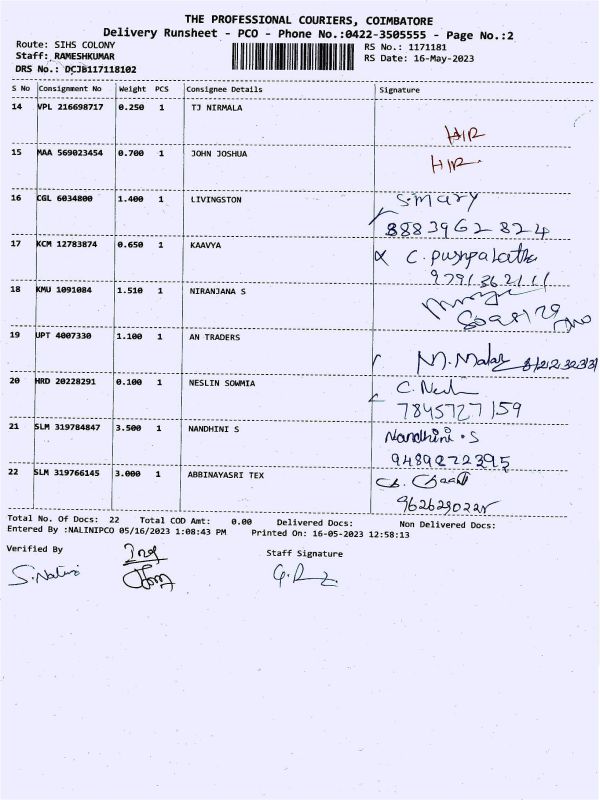 THE PROFESSIONAL COURIERS, COIMBATORE
Delivery Runsheet - PCO - Phone No.:0422-3505555 - Page No.:2
Route: SIHS COLONY
RS No.: 1171181
Staff: RAMESHKUMAR
RS Date: 16-May-2023
DRS No.: DCJB117118102
S No Consignment No Weight PCS Consignee Details Signature
14 VPL 216698717 0.250 1 TJ NIRMALA
H/R
15 MAA 569023454 0.700 1 JOHN JOSHUA
H/R
16 CGL 6034800 1.400 1 LIVINGSTON S.Mary
8883962824
17 KCM 12783874 0.650 1 KAAVYA C. Pushpalatha
9791362111
18 KMU 1091084 1.510 1 NIRANJANA S
19 UPT 4007330 1.100 1 AN TRADERS
M. Malar
20 HRD 20228291 0.100 1 NESLIN SOWMIA C.
7845727159
21 SLM 319784847 3.500 1 NANDHINI S Nandhini.S
9489272395
22 SLM 319766145 3.000 1 ABBINAYASRI TEX
Total No. Of Docs: 22 Total COD Amt: 0.00 Delivered Docs: Non Delivered Docs:
Entered By :NALINIPCO 05/16/2023 1:08:43 PM Printed On: 16-05-2023 12:58:13
Verified By Staff Signature